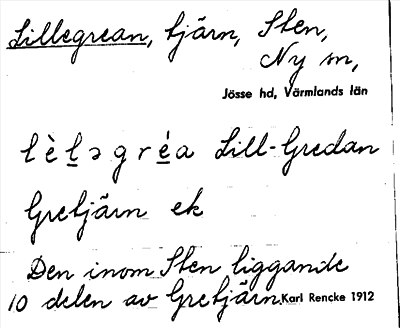 Lillegrean, tjärn, Sten,
Ny sn,
Jösse hd, Värmlands län
lèl̲əgré̲a Lill-Gredan
Gretjärn ek
Den inom Sten liggande
10 delen av Gretjärn.
Karl Rencke 1912